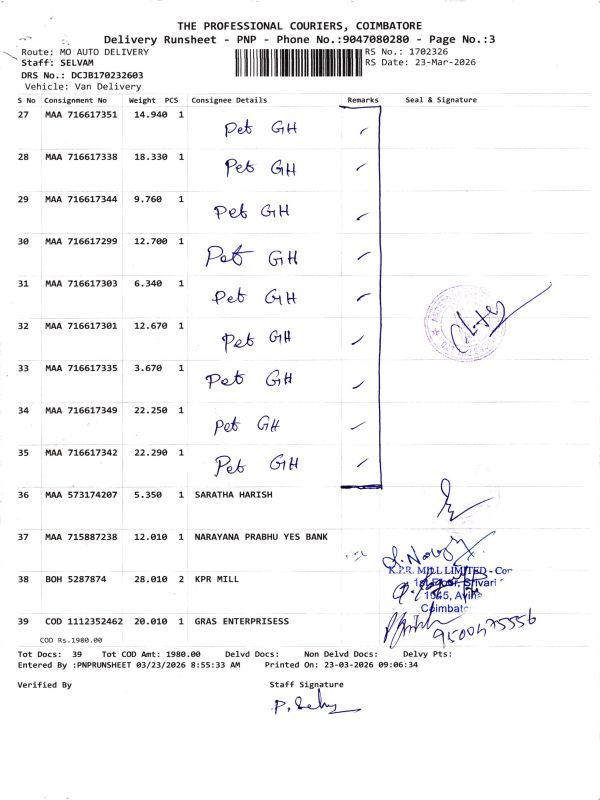 THE PROFESSIONAL COURIERS, COIMBATORE
Delivery Runsheet - PNP - Phone No.:9047080280 - Page No.:3
Route: MO AUTO DELIVERY RS No.: 1702326
Staff: SELVAM RS Date: 23-Mar-2026
DRS No.: DCJB170232603
Vehicle: Van Delivery
S No Consignment No Weight PCS Consignee Details Remarks Seal & Signature
27 MAA 716617351 14.940 1 Pet GH
28 MAA 716617338 18.330 1 Pet GH
29 MAA 716617344 9.760 1 Pet GH
30 MAA 716617299 12.700 1 Pet GH
31 MAA 716617303 6.340 1 Pet GH
32 MAA 716617301 12.670 1 Pet GH
33 MAA 716617335 3.670 1 Pet GH
34 MAA 716617349 22.250 1 Pet GH
35 MAA 716617342 22.290 1 Pet GH
36 MAA 573174207 5.350 1 SARATHA HARISH
37 MAA 715887238 12.010 1 NARAYANA PRABHU YES BANK
K.P.R. MILL LIMITED - Cor
38 BOH 5287874 28.010 2 KPR MILL
Coimbator
39 COD 1112352462 20.010 1 GRAS ENTERPRISESS
9500475556
COD Rs.1980.00
Tot Docs: 39 Tot COD Amt: 1980.00 Delvd Docs: Non Delvd Docs: Delvy Pts:
Entered By :PNPRUNSHEET 03/23/2026 8:55:33 AM Printed On: 23-03-2026 09:06:34
Verified By Staff Signature